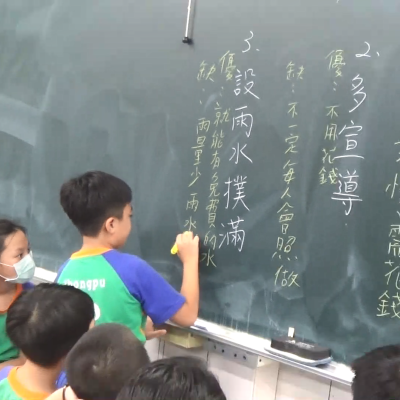 需花錢
2. 多宣導
優：不用花錢
缺：不一定每人會照做
3. 設雨水撲滿
優：就能有免費的水
缺：雨量少雨水